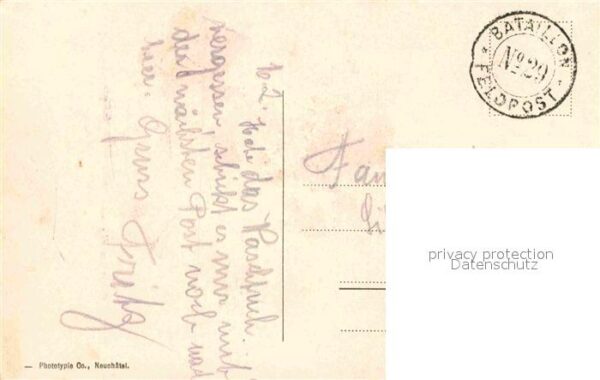 BATAILLON
No 29
FELDPOST
M. L. Habe das
vergessen, schickt es mir mit
der nächsten Post noch nach
hier. Gruss Fritz
Fam
privacy protection
Datenschutz
— Phototypie Co., Neuchâtel.